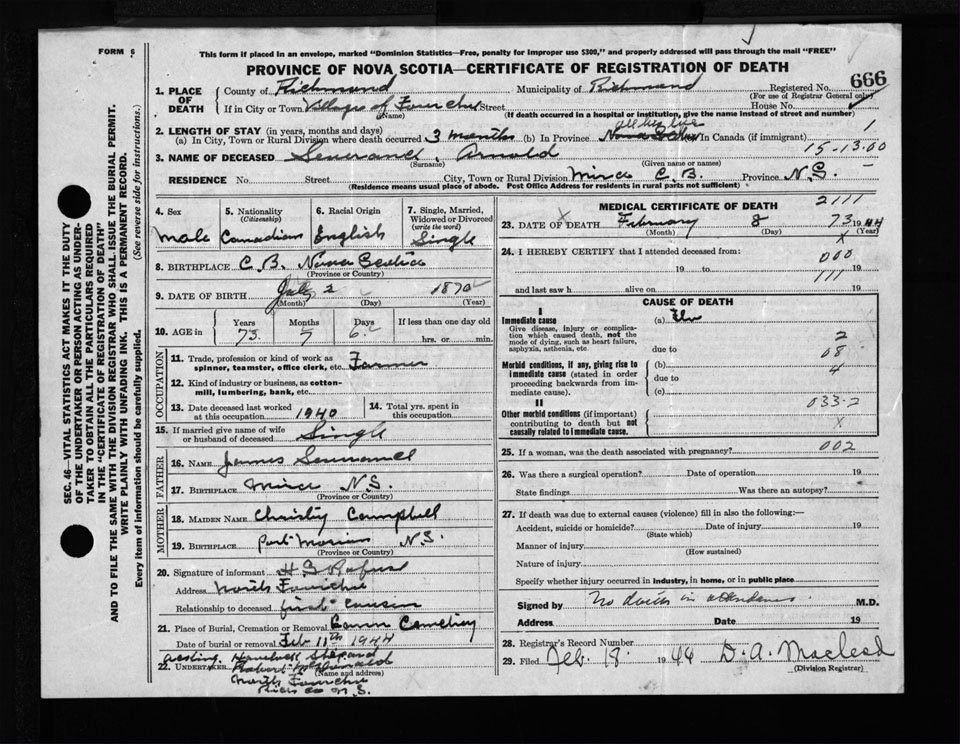 FORM 6
This form if placed in an envelope, marked "Dominion Statistics—Free, penalty for improper use $300," and properly addressed will pass through the mail "FREE"
PROVINCE OF NOVA SCOTIA—CERTIFICATE OF REGISTRATION OF DEATH
666
1. PLACE OF DEATH County of Richmond Municipality of Richmond Registered No.
(For use of Registrar General only)
If in City or Town Village of Fourchu Street House No.
(Name) (If death occurred in a hospital or institution, give the name instead of street and number)
2. LENGTH OF STAY (in years, months and days) all his life
(a) In City, Town or Rural Division where death occurred 3 months (b) In Province Nova Scotia In Canada (if immigrant) 1
15-13.00
3. NAME OF DECEASED Arnold
(Surname) (Given name or names)
RESIDENCE No. Street City, Town or Rural Division C.B. Province N.S.
(Residence means usual place of abode. Post Office Address for residents in rural parts not sufficient)
4. Sex
Male
5. Nationality
(Citizenship)
Canadian
6. Racial Origin
English
7. Single, Married, Widowed or Divorced
(write the word)
Single
8. BIRTHPLACE C.B. Nova Scotia
(Province or Country)
9. DATE OF BIRTH July 2 1870
(Month) (Day) (Year)
10. AGE in Years Months Days If less than one day old
73 7 6 hrs. or min.
OCCUPATION
11. Trade, profession or kind of work as spinner, teamster, office clerk, etc. Farmer
12. Kind of industry or business, as cotton-mill, lumbering, bank, etc.
13. Date deceased last worked at this occupation 1940
14. Total yrs. spent in this occupation
15. If married give name of wife or husband of deceased Single
FATHER
16. NAME James
17. BIRTHPLACE N.S.
(Province or Country)
MOTHER
18. MAIDEN NAME Christy Campbell
19. BIRTHPLACE Port Morien N.S.
(Province or Country)
20. Signature of informant H S Rafuse
Address North Fourchu
Relationship to deceased first cousin
21. Place of Burial, Cremation or Removal Cemetery
Date of burial or removal Feb 11th 1944
acting
22. UNDERTAKER
(Name and address)
North Fourchu
Rich Co N.S.
MEDICAL CERTIFICATE OF DEATH 2111
23. DATE OF DEATH February 8 73 1944
(Month) (Day) (Year)
X
24. I HEREBY CERTIFY that I attended deceased from:
000
19 to 19
111
and last saw h alive on 19
CAUSE OF DEATH
I
Immediate cause (a) Flu
Give disease, injury or complication which caused death, not the mode of dying, such as heart failure, asphyxia, asthenia, etc.
2
due to
08
Morbid conditions, if any, giving rise to immediate cause (stated in order proceeding backwards from immediate cause). (b)
4
due to
(c)
II
033-2
Other morbid conditions (if important) contributing to death but not causally related to immediate cause.
X
25. If a woman, was the death associated with pregnancy? 002
26. Was there a surgical operation? Date of operation 19
State findings Was there an autopsy?
27. If death was due to external causes (violence) fill in also the following:—
Accident, suicide or homicide? Date of injury 19
(State which)
Manner of injury
(How sustained)
Nature of injury
Specify whether injury occurred in industry, in home, or in public place
Signed by No doctor in attendance M.D.
Address Date 19
28. Registrar's Record Number
29. Filed Feb. 18 1944 D. A. Macleod
(Division Registrar)
SEC. 46—VITAL STATISTICS ACT MAKES IT THE DUTY OF THE UNDERTAKER OR PERSON ACTING AS UNDERTAKER TO OBTAIN ALL THE PARTICULARS REQUIRED IN THE "CERTIFICATE OF REGISTRATION OF DEATH" AND TO FILE THE SAME WITH THE DIVISION REGISTRAR WHO SHALL ISSUE THE BURIAL PERMIT.
WRITE PLAINLY WITH UNFADING INK. THIS IS A PERMANENT RECORD.
Every item of information should be carefully supplied. (See reverse side for instructions.)